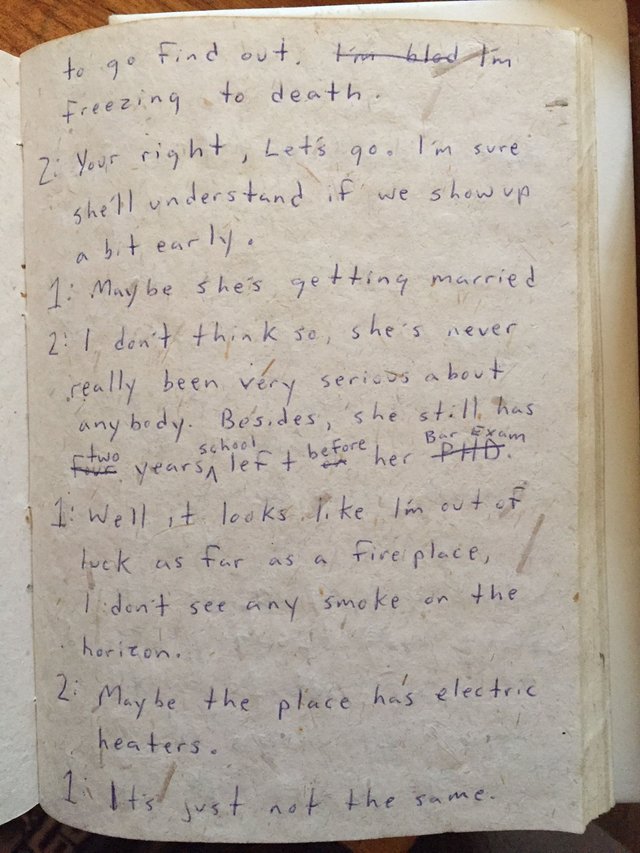 to go find out. I'm blod I'm
freezing to death.
2: Your right, Let's go. I'm sure
she'll understand if we show up
a bit early.
1: Maybe she's getting married
2: I don't think so, she's never
really been very serious about
anybody. Besides, she still has
two school before Bar Exam
four years left on her PHD.
1: Well it looks like I'm out of
luck as far as a fireplace,
I don't see any smoke on the
horizon.
2: Maybe the place has electric
heaters.
1: It's just not the same.